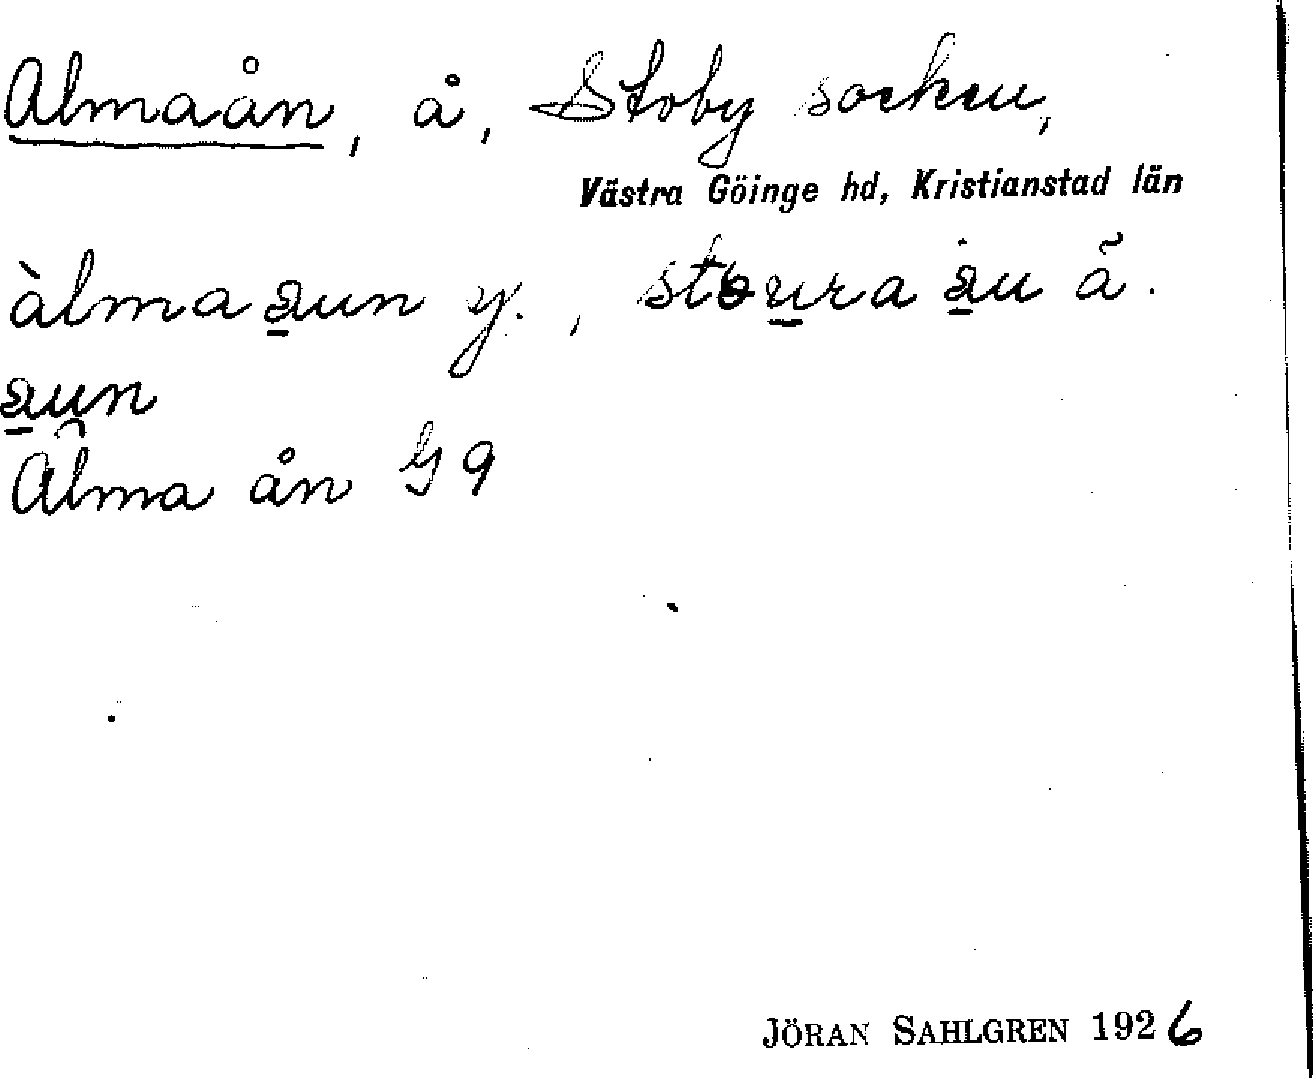 Almaån, å, Stoby socken,
Västra Göinge hd, Kristianstad län
àlma y., å.
Alma ån G 9
JÖRAN SAHLGREN 1926